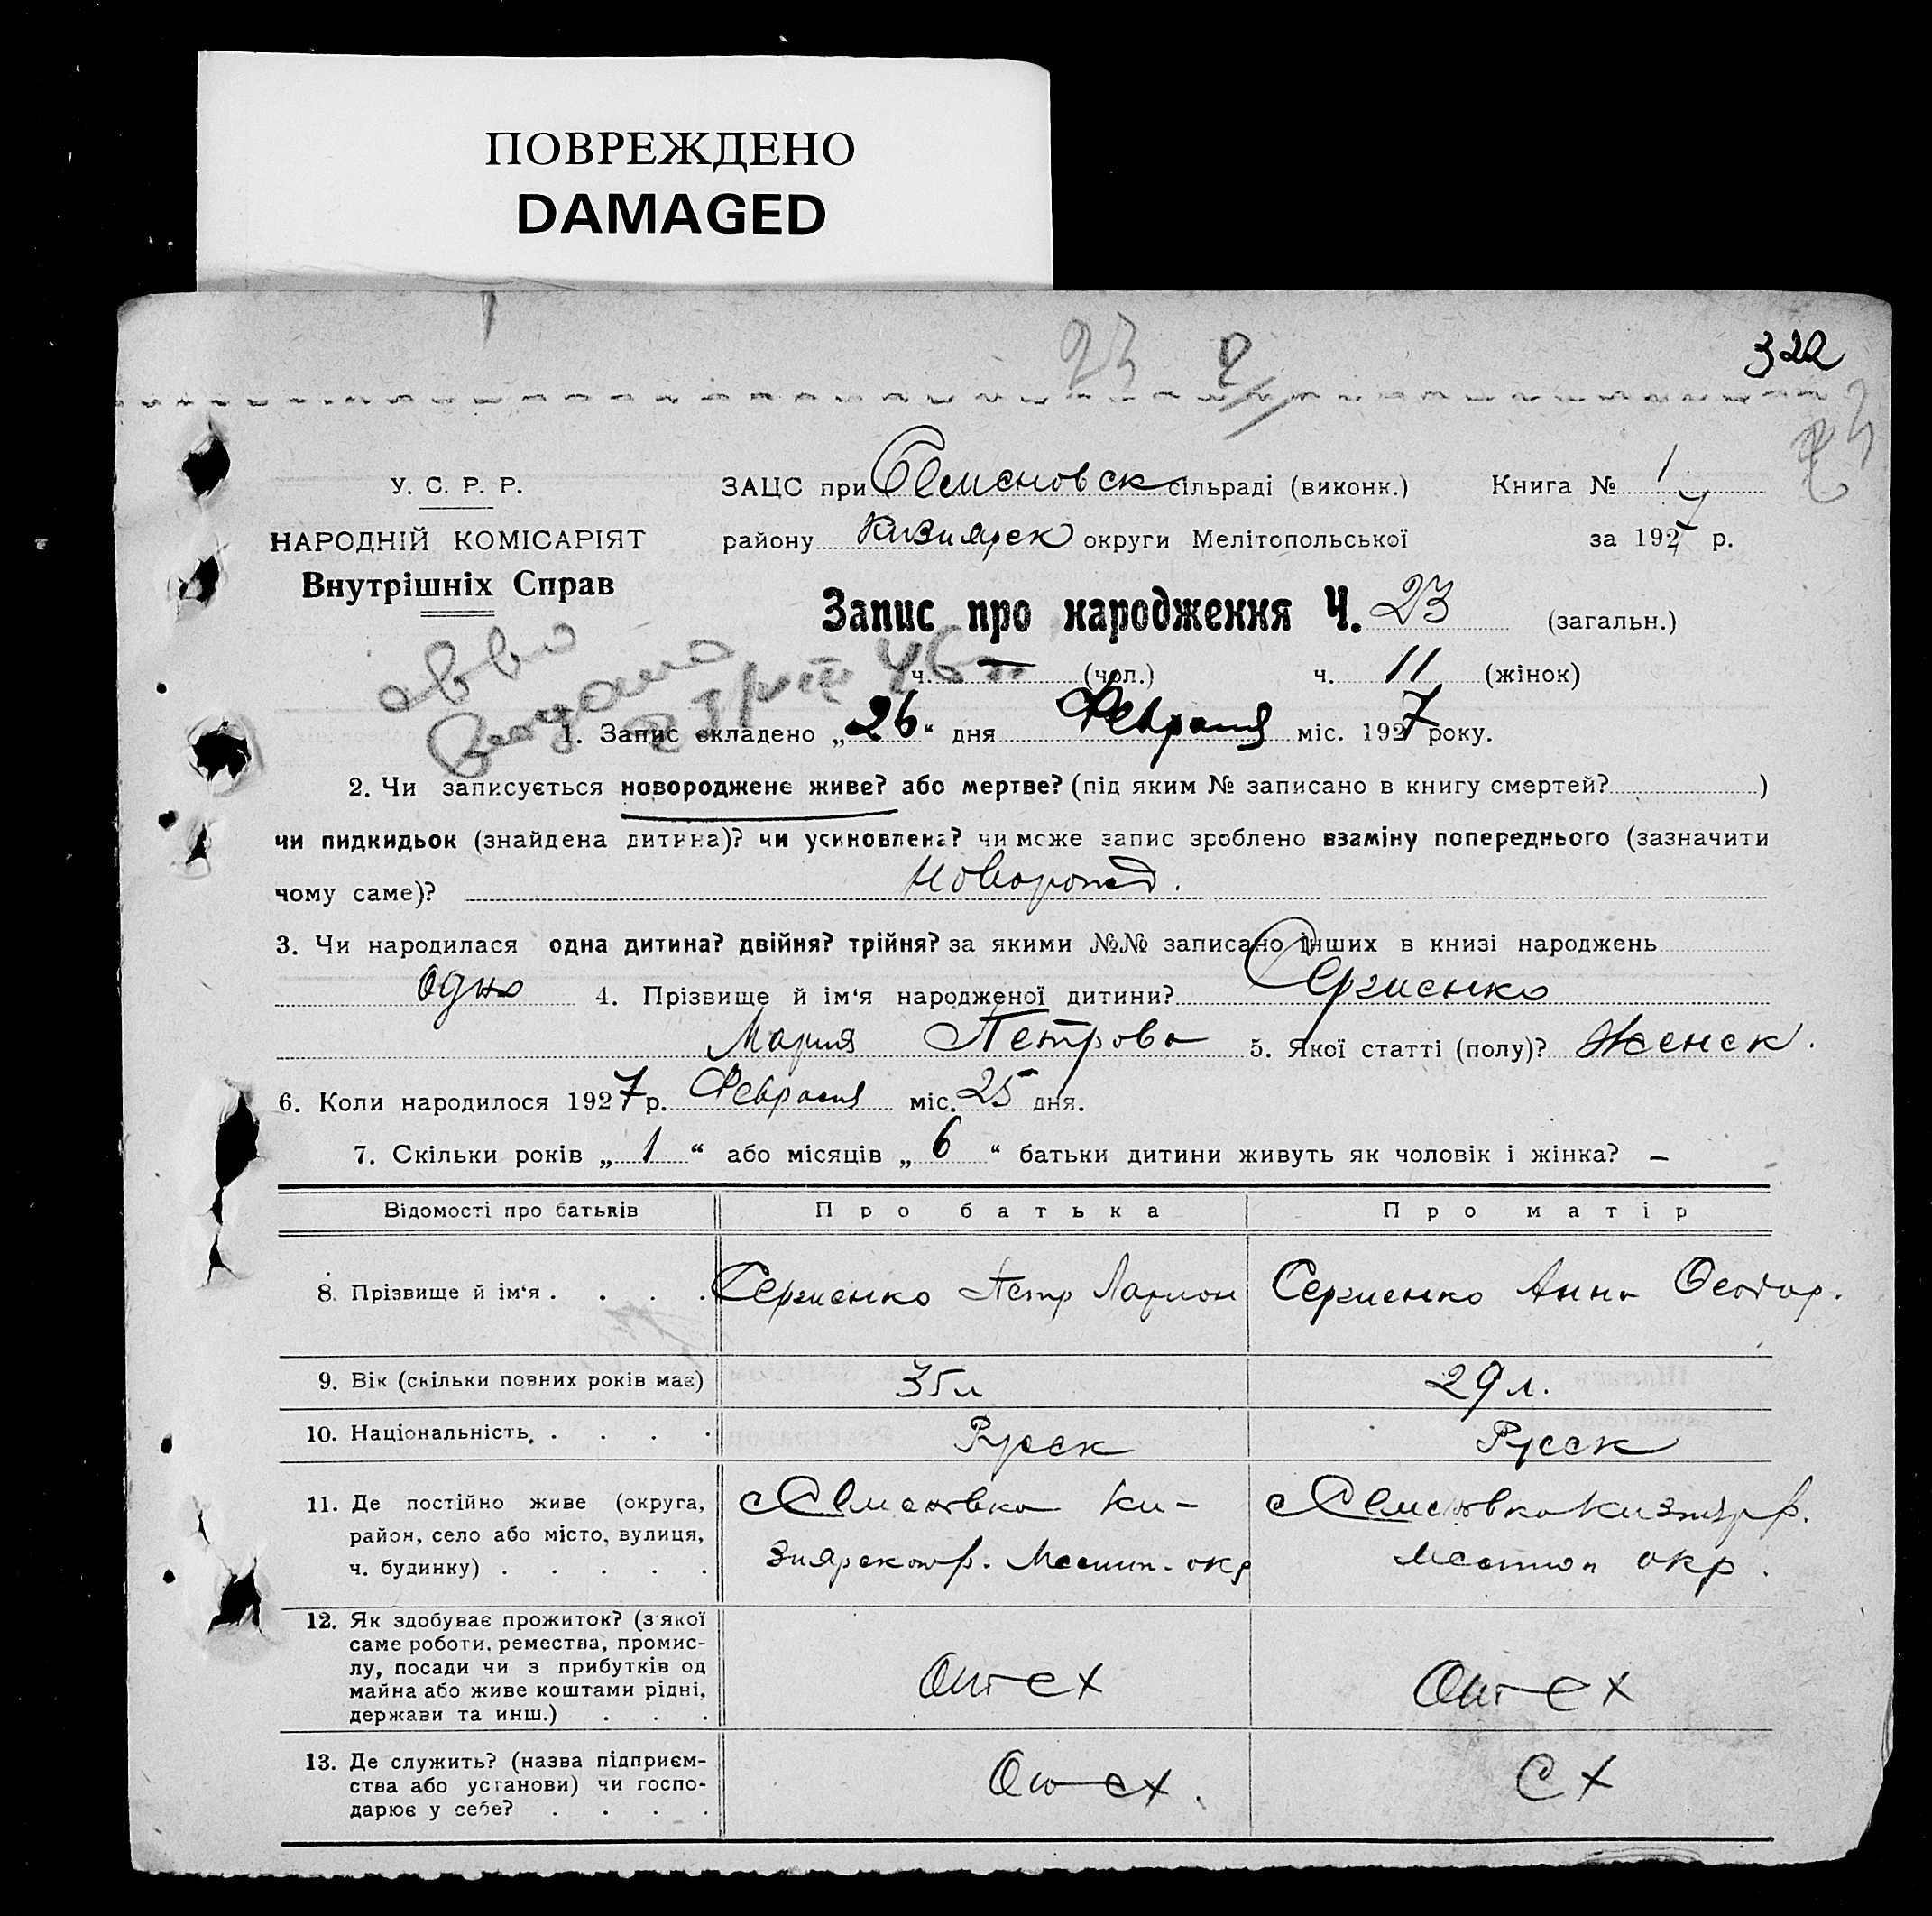 ПОВРЕЖДЕНО
DAMAGED
23 2
322
23
У. С. Р. Р.
НАРОДНІЙ КОМІСАРІЯТ
Внутрішніх Справ
ЗАЦС при Семеновск сільраді (виконк.) Книга № 1
району Кизиярск округи Мелітопольської за 1927 р.
Запис про народження Ч. 23 (загальн.)
ч. — (чол.) ч. 11 (жінок)
1. Запис складено „26“ дня Февраля міс. 1927 року.
2. Чи записується новороджене живе? або мертве? (під яким № записано в книгу смертей? )
чи пидкидьок (знайдена дитина)? чи усиновлена? чи може запис зроблено взаміну попереднього (зазначити
чому саме)? Новорожд.
3. Чи народилася одна дитина? двійня? трійня? за якими №№ записано інших в книзі народжень
Одно 4. Прізвище й ім‘я народженої дитини? Сергиенко
Мария Петрова 5. Якої статті (полу)? Женск.
6. Коли народилося 1927 р. Февраля міс. 25 дня.
7. Скільки років „1“ або місяців „6“ батьки дитини живуть як чоловік і жінка? —
Відомості про батьків Про батька Про матір
8. Прізвище й ім‘я . . . . Сергиенко Петр Ларион Сергиенко Анна Феодор.
9. Вік (скільки повних років має) 35 л 29 л.
10. Національність . . . . Русск Русск
11. Де постійно живе (округа, с Семеновка Ки- с Семеновка Кизияр р.
район, село або місто, вулиця, зиярского р. Мелит. окр Мелитоп окр.
ч. будинку) . . . . .
12. Як здобуває прожиток? (з якої
саме роботи, ремества, промис-
лу, посади чи з прибутків од
майна або живе коштами рідні, от с х от с х
держави та инш.) . . .
13. Де служить? (назва підприєм-
ства або установи) чи госпо- с х. С х
дарює у себе? . . . .